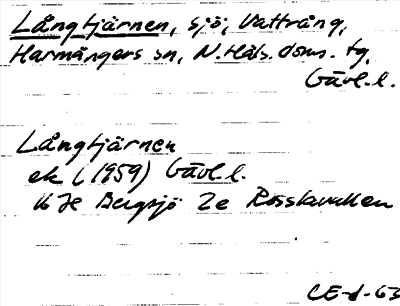 Långtjärnen, sjö, Vattrång,
Harmångers sn, N. Häls. doms. tg,
Gävl. l.
Långtjärnen
ek (1959) Gävl. l.
16 H Bergsjö 2e Rosslavallen
CE-d-63